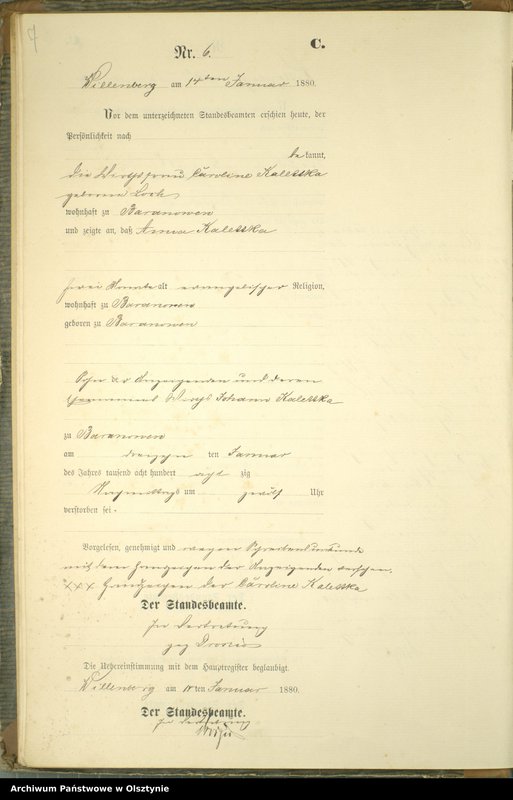 C.
Nr. 6.
Willenberg am 14ten Januar 1880.
Vor dem unterzeichneten Standesbeamten erschien heute, der
Persönlichkeit nach
bekannt,
die Wirthsfrau Caroline Kalesska
geborene
wohnhaft zu Baranowen
und zeigte an, daß Anna Kalesska
zwei Monate alt evangelischer Religion,
wohnhaft zu Baranowen
geboren zu Baranowen
der Anzeigenden und deren
Wirths Johann Kalesska
zu Baranowen
am ten Januar
des Jahres tausend acht hundert acht zig
Nachmittags um zwölf Uhr
verstorben sei.
Vorgelesen, genehmigt und wegen
mit dem Handzeichen der Anzeigenden versehen.
XXX Handzeichen der Caroline Kalesska
Der Standesbeamte.
In Vertretung
gez
Die Uebereinstimmung mit dem Hauptregister beglaubigt.
Willenberg am ten Januar 1880.
Der Standesbeamte.
In Vertretung
Archiwum Państwowe w Olsztynie